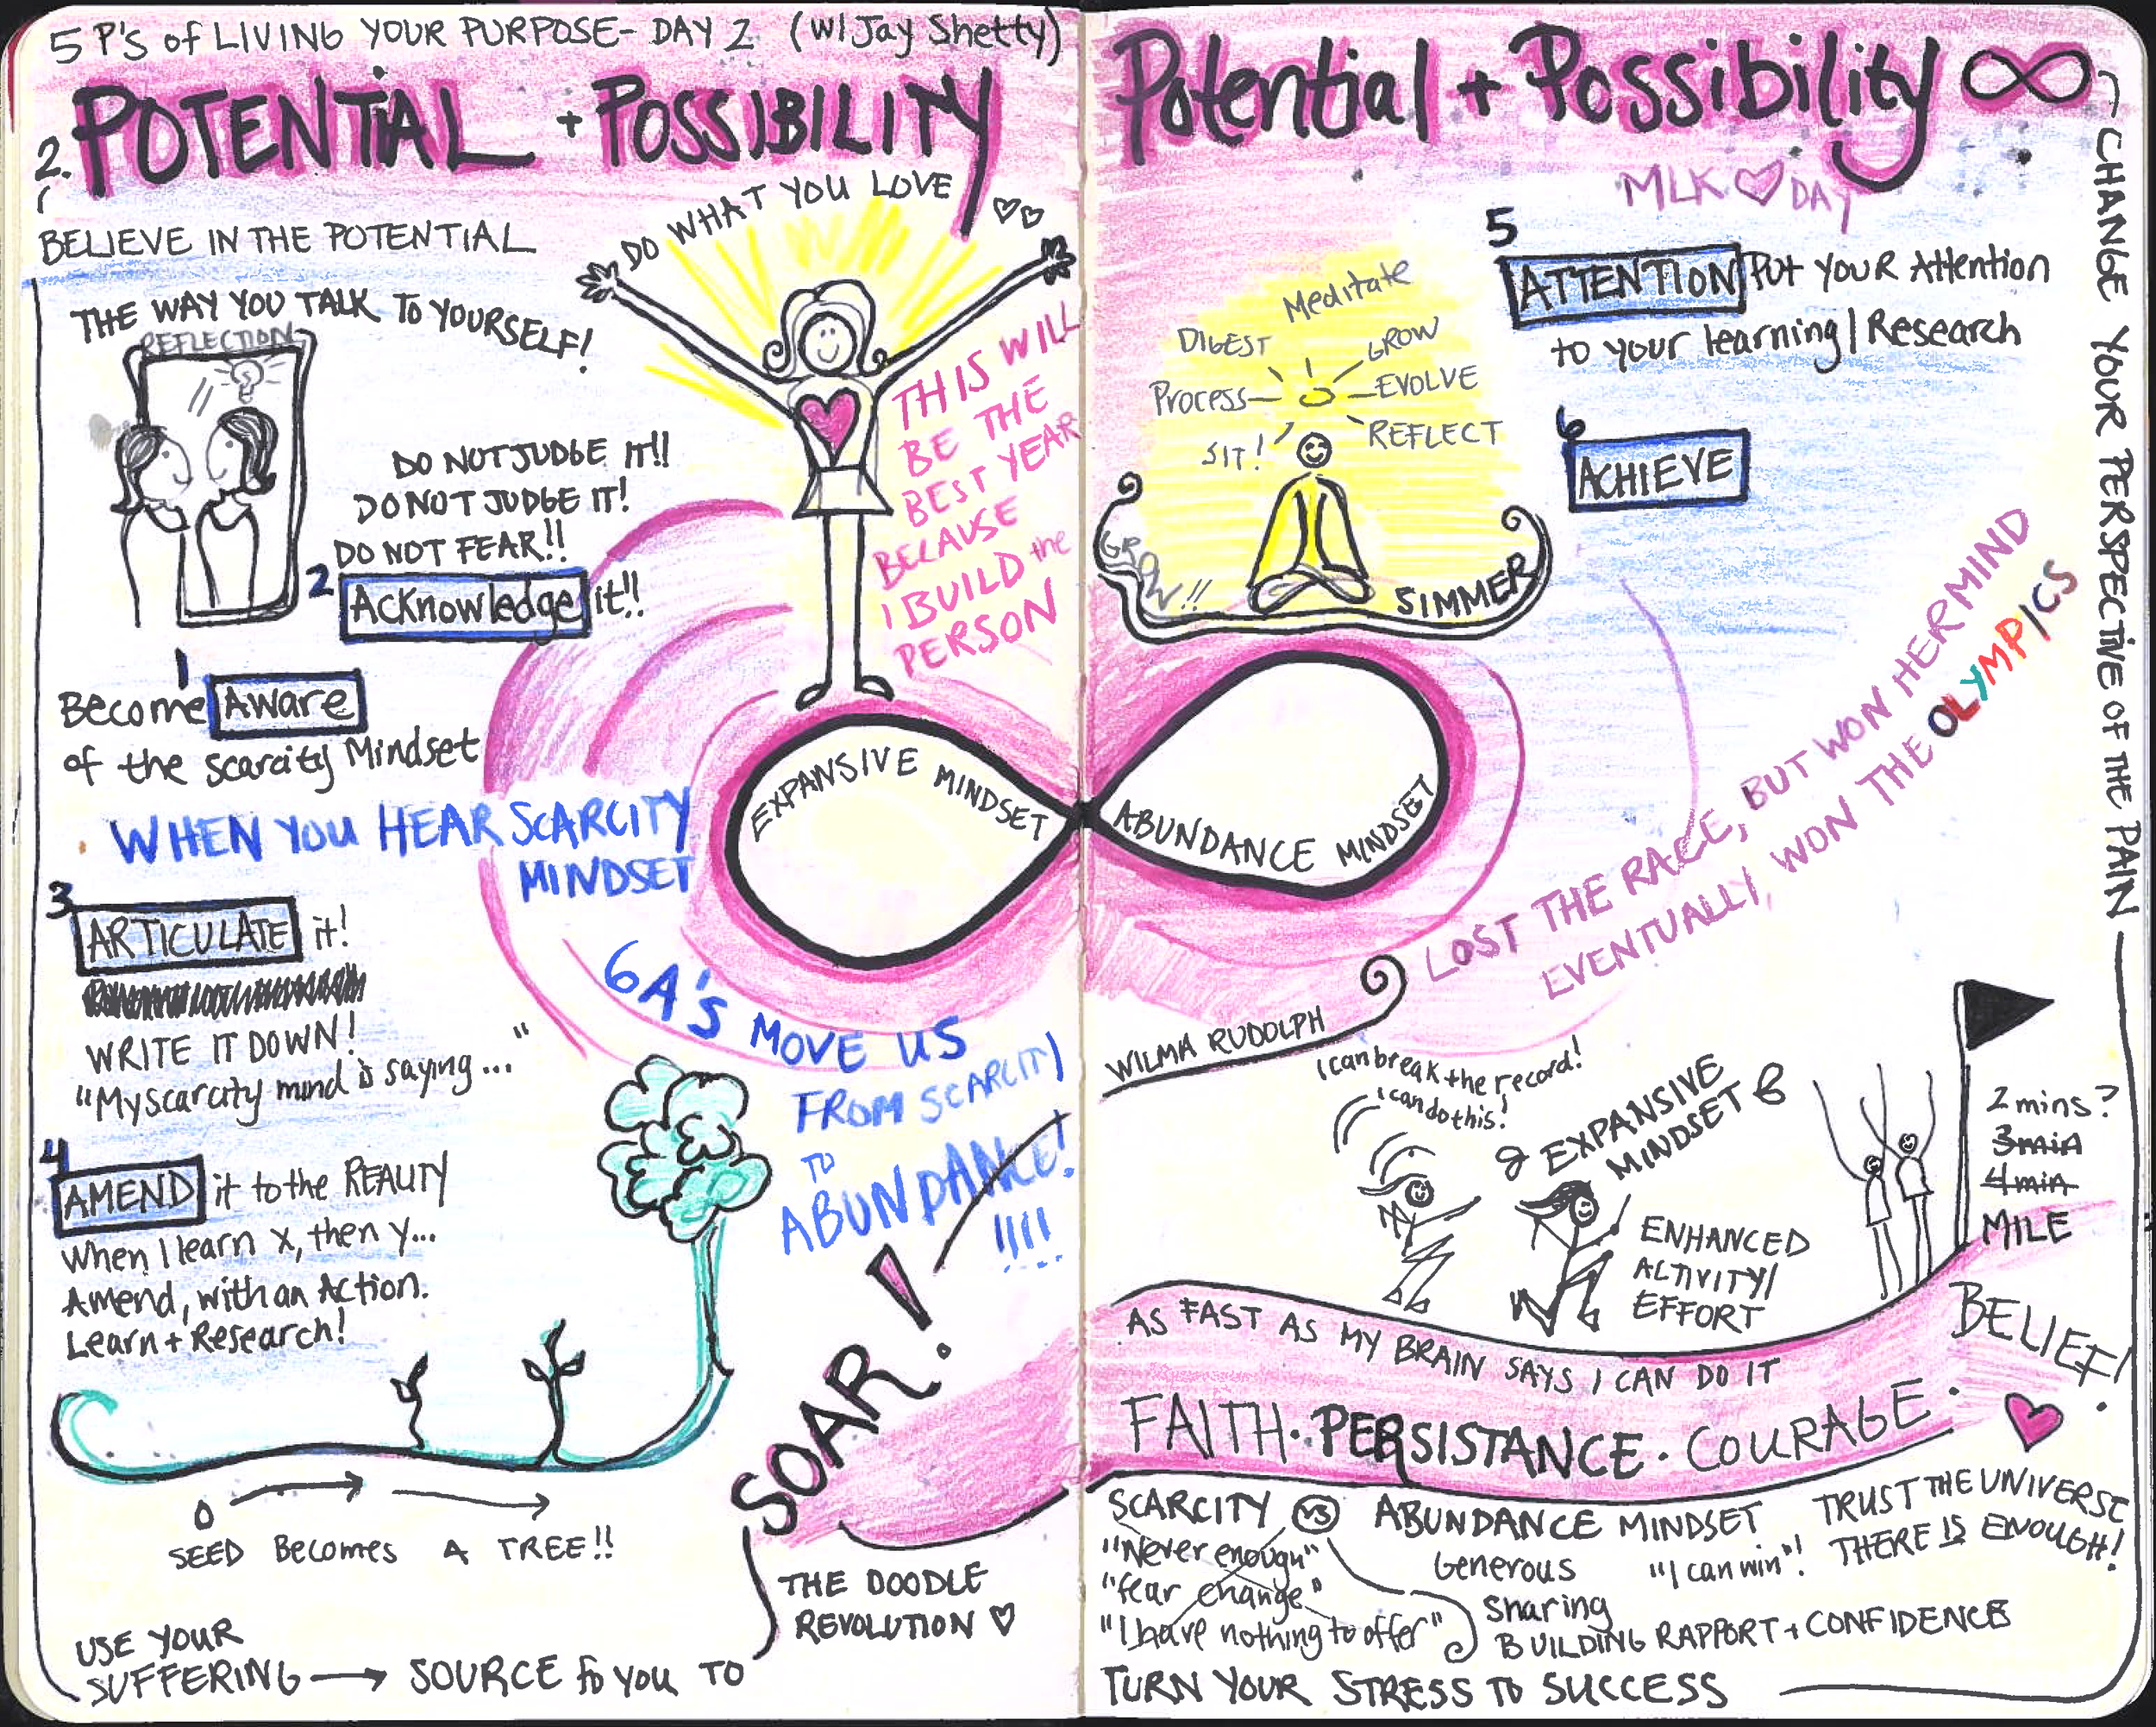 5 P's of LIVING YOUR PURPOSE- DAY 2 (w/ Jay Shetty)
2. POTENTIAL + POSSIBILITY
BELIEVE IN THE POTENTIAL
THE WAY YOU TALK TO YOURSELF!
REFLECTION
DO NOT JUDGE IT!!
DO NOT JUDGE IT!
DO NOT FEAR!!
2 Acknowledge it!!
1
Become Aware
of the scarcity Mindset
WHEN YOU HEAR SCARCITY
MINDSET
3
ARTICULATE it!
WRITE IT DOWN!
"My scarcity mind is saying..."
4
AMEND it to the REALITY
When I learn x, then y...
Amend, with an Action.
Learn + Research!
SEED Becomes A TREE!!
USE YOUR
SUFFERING → SOURCE for YOU TO
SOAR!
THE DOODLE
REVOLUTION ♡
DO WHAT YOU LOVE ♡♡
THIS WILL
BE THE
BEST YEAR
BECAUSE
I BUILD the
PERSON
EXPANSIVE MINDSET
ABUNDANCE MINDSET
6 A'S MOVE US
FROM SCARCITY
TO
ABUNDANCE!
!!!!
Potential + Possibility ∞
MLK ♡ DAY
CHANGE YOUR PERSPECTIVE OF THE PAIN
5
ATTENTION Put YOUR Attention
to your learning/Research
6
ACHIEVE
Meditate
DIGEST
GROW
Process
EVOLVE
SIT!
REFLECT
GROW!!
SIMMER
LOST THE RACE, BUT WON HER MIND
EVENTUALLY, WON THE OLYMPICS
WILMA RUDOLPH
I can break the record!
I can do this!
EXPANSIVE
MINDSET
ENHANCED
ACTIVITY/
EFFORT
2 mins?
3 min
4 min
MILE
AS FAST AS MY BRAIN SAYS I CAN DO IT
BELIEF!
FAITH · PERSISTANCE · COURAGE ·
SCARCITY VS ABUNDANCE MINDSET
"Never enough"
"fear change"
"I have nothing to offer"
Generous
"I can win"!
Sharing
BUILDING RAPPORT + CONFIDENCE
TRUST THE UNIVERSE
THERE IS ENOUGH!
TURN YOUR STRESS TO SUCCESS